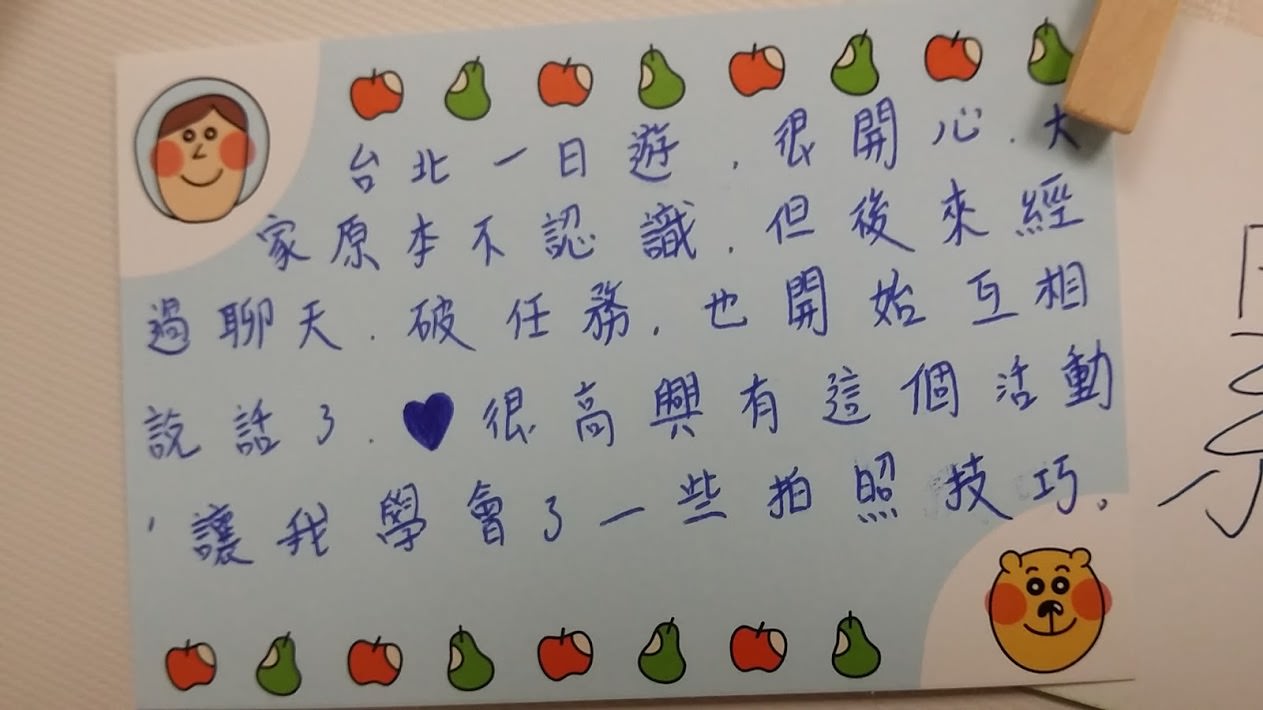 台北一日遊，很開心．大
家原本不認識．但後來經
過聊天．破任務．也開始互相
說話了．♥很高興有這個活動
，讓我學會了一些拍照技巧。